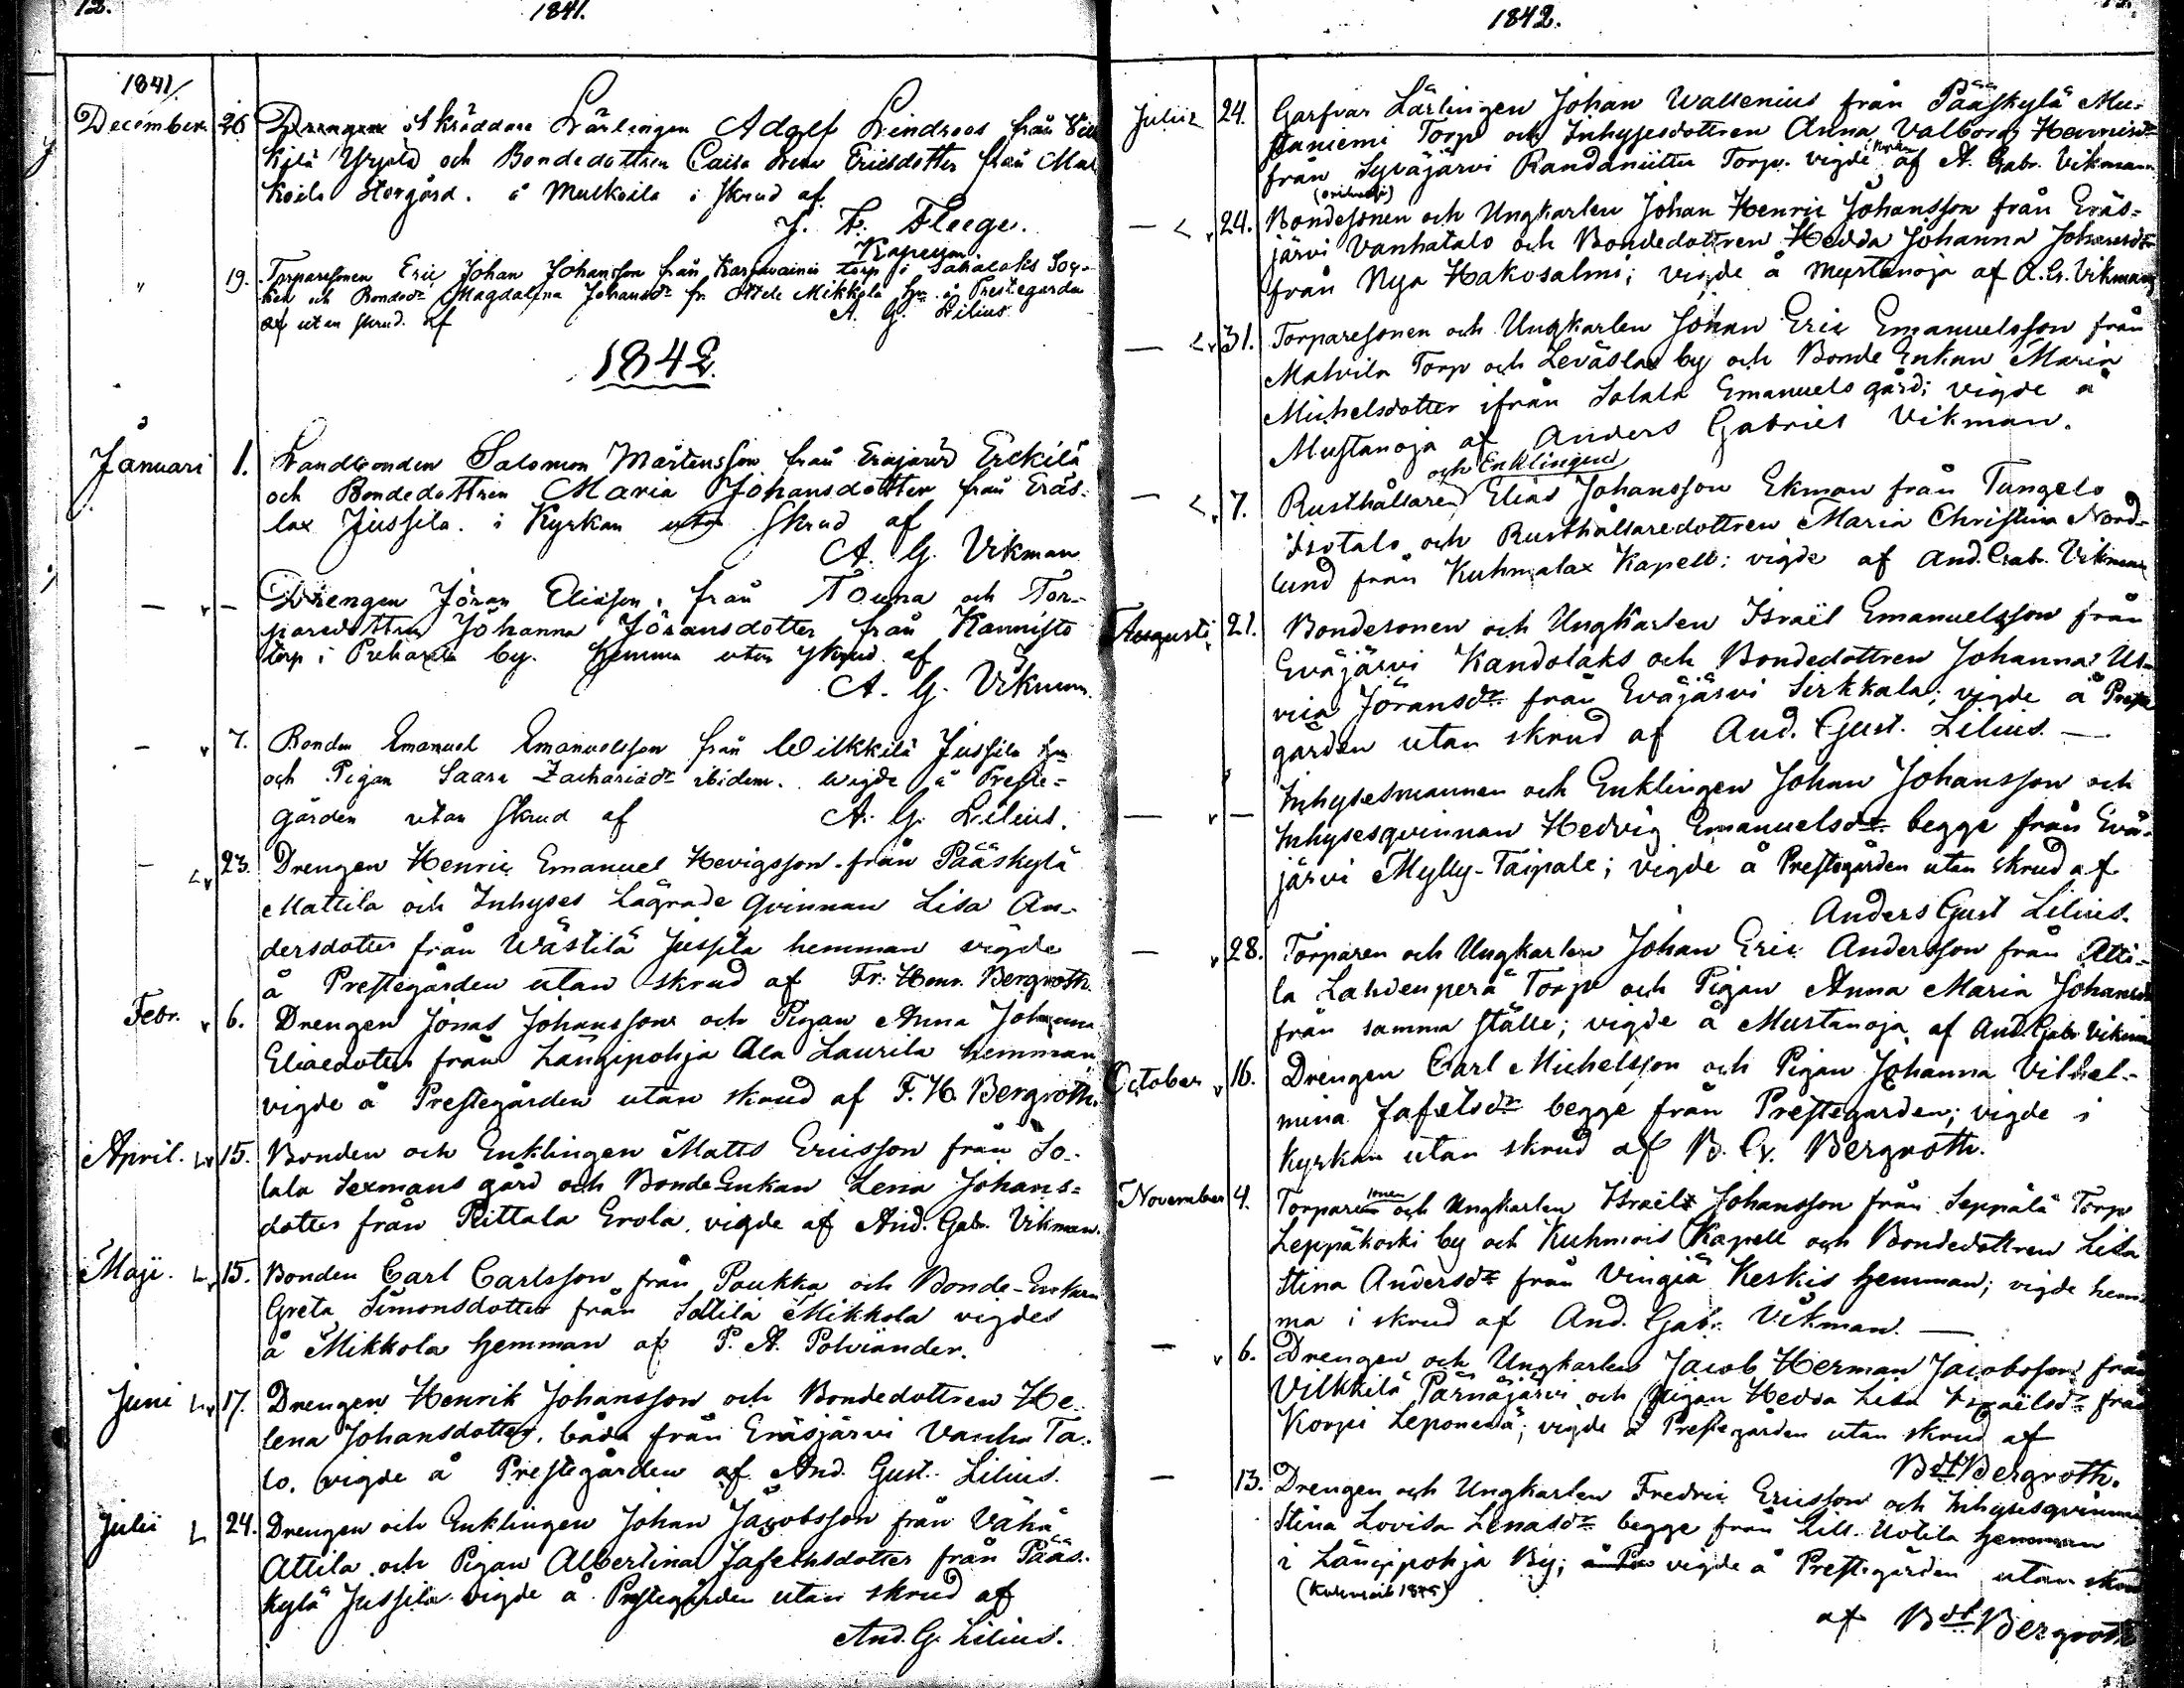 12.
1841.
1841/
December 26 Drengen Skräddare Lärlingen Adolf Lindroos från
kilä Yrjölä och Bondedottren Caisa Ericsdotter från Mul
koila Storgård. å Mulkoila i skrud af
J. F. Fleege.
Kapellan
" 19. Torparesonen Eric Johan Johansson från Karjavainio torp i Sahalaks Soc-
ken och Bondedr Magdalena Johansdr fr. Ottele Mikkola hn å Prestegården
af utan skrud. af A. G. Lilius
1842.
Januari 1. Landbonden Salomon Mårtensson från Eräjärvi Erckilä
och Bondedottren Maria Johansdotter från Eräs-
lax Jussila. i Kyrkan utan skrud af
A. G. Vikman
— v — Drengen Jöran Eliasson, från Touna och Tor-
paredottren Johanna Jöransdotter från Kannisto
torp i Puharila by. hemma utan skrud af
A. G. Vikman.
— v 7. Bonden Emanuel Emanuelsson från Wilkkilä Jussila hn
och Pigan Saara Zachariædr ibidem. wigde å Preste-
gården utan skrud af A. G. Lilius.
— 23. Drengen Henric Emanuel Hevigsson från Pääskylä
Mattila och Inhyses Lägrade qvinnan Lisa An-
dersdotter från Wästilä Jussila hemman vigde
å Prestegården utan skrud af Fr: Henr. Bergroth.
Febr. v 6. Drengen Jonas Johansson och Pigan Anna Johanna
Eliædotter från Längipohja Ala Laurila hemman
vigde å Prestegården utan skrud af F. H. Bergroth.
April. Lv 15. Bonden och Enklingen Matts Ericsson från So-
lala Sexmans gård och BondeEnkan Lena Johans-
dotter från Pittala Erola, vigde af And. Gab. Vikman.
Maji. Lv 15. Bonden Carl Carlsson från Paukka och Bonde-Enkan
Greta Simonsdotter från Sottila Mikkola vigdes
å Mikkola hemman af P. A. Polviander.
Juni Lv 17. Drengen Henrik Johansson och Bondedottren He-
lena Johansdotter, båda från Eräsjärvi Vanha Ta-
lo, vigde å Prestegården af And. Gust. Lilius.
Julii L 24. Drengen och Enklingen Johan Jacobsson från Vähä
Attila och Pigan Albertina Jafethsdotter från Pääs-
kylä Jussila vigde å Prestegården utan skrud af
And. G. Lilius.
1842.
Julii 24. Garfvar Lärlingen Johan Wallenius från Pääskylä Mu-
staniemi Torp och Inhysesdottren Anna Valborg Henricsdr
från Syväjärvi Randaniittu Torp. vigde i kyrkan af A. Gabr. Vikman
(orihvedsi)
— 24. Bondesonen och Ungkarlen Johan Henric Johansson från Eräs-
järvi Vanhatalo och Bondedottren Hedda Johanna Johansdr
från Nya Hakosalmi; vigde å Mustanoja af A. G. Vikman
— 31. Torparesonen och Ungkarlen Johan Eric Emanuelsson från
Matvila Torp och Leväslax by och Bonde Enkan Maria
Michelsdotter ifrån Solala Emanuels gård; vigde å
Mustanoja af Anders Gabriel Vikman.
och Enklingen
— 7. Rusthållaren Elias Johansson Ekman från Tungelo
Isotalo och Rusthållaredottren Maria Christina Nord-
lund från Kuhmalax Kapell; vigde af And. Gab. Vikman
Augusti 21. Bondesonen och Ungkarlen Israël Emanuelsson från
Eväjärvi Kandolaks och Bondedottren Johanna Ul-
rica Jöransdr från Eväjärvi Sirkkala; vigde å Preste
gården utan skrud af And. Gust. Lilius. —
— v — Inhysesmannen och Enklingen Johan Johansson och
Inhysesqvinnan Hedvig Emanuelsdr begge från Evä-
järvi Mylly-Taipale; vigde å Prestegården utan skrud af
Anders Gust Lilius.
— v 28. Torparen och Ungkarlen Johan Eric Andersson från Atti-
la Lahdenperä Torp och Pigan Anna Maria Johansdr
från samma ställe; vigde å Mustanoja af And. Gab. Vikman
October v 16. Drengen Carl Michelsson och Pigan Johanna Vilhel-
mina Jafetsdr begge från Prestegården; vigde i
Kyrkan utan skrud af B. G. Bergroth.
November 4. Torparesonen och Ungkarlen Israel Johansson från Seppälä Torp
Leppäkoski by och Kuhmois Kapell och Bondedottren Lisa
Stina Andersdr från Vingiä Keskis hemman; vigde hem-
ma i skrud af And. Gabr. Vikman. —
— v 6. Drengen och Ungkarlen Jacob Herman Jacobsson från
Vilkkilä Pärnäjärvi och Pigan Hedda Lisa Israëlsdr från
Korpi Leponemä; vigde å Prestegården utan skrud af
Bdt Bergroth.
— 13. Drengen och Ungkarlen Fredric Ericsson och Inhysesqvinnan
Stina Lovisa Lenasdr begge från Lill-Uotila hemman
i Längipohja By; vigde å Prestegården utan skrud
af Bdt Bergroth